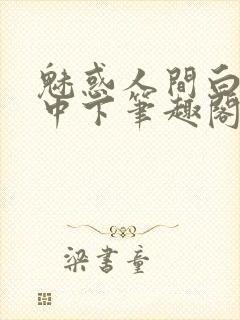 魅惑人間白
中下筆趣閣
梁書童